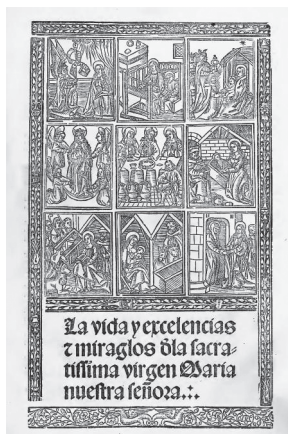 La vida y excelencias
⁊ miraglos d̄la sacra-
tissima virgen Maria
nuestra señora.:.